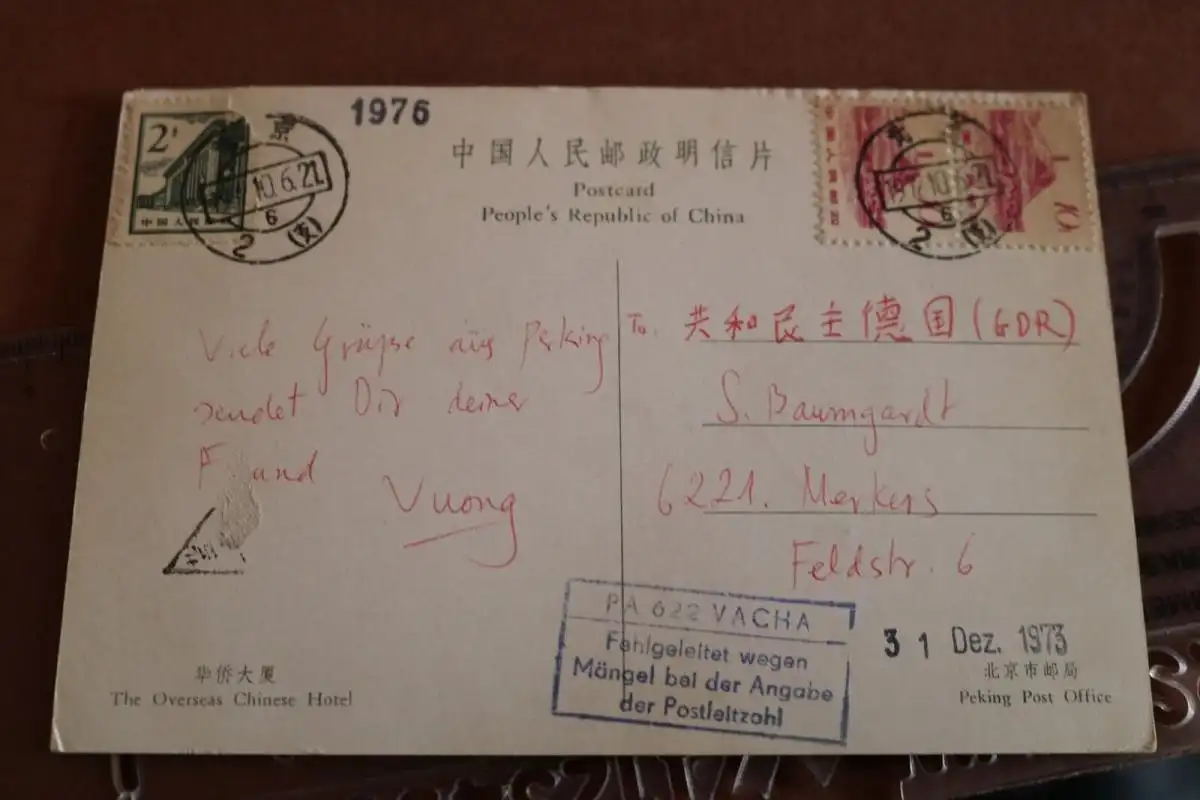 1976
2分
中国人民邮政
京
10.6.21
6
2 (支)
中国人民邮政明信片
Postcard
People's Republic of China
中国人民邮政
10
10.6.21
6
2
Viele Grüße aus Peking
sendet Dir deiner
F und
Vuong
To. 共和民主德国(GDR)
S. Baumgardt
6221. Merkers
Feldstr. 6
PA 622 VACHA
Fehlgeleitet wegen
Mängel bei der Angabe
der Postleitzahl
31 Dez. 1973
华侨大厦
The Overseas Chinese Hotel
北京市邮局
Peking Post Office